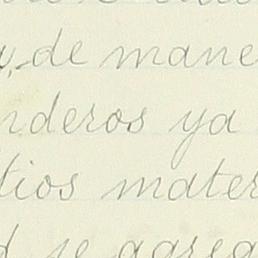 de mane
nderos ya
tios mater
d se agrega